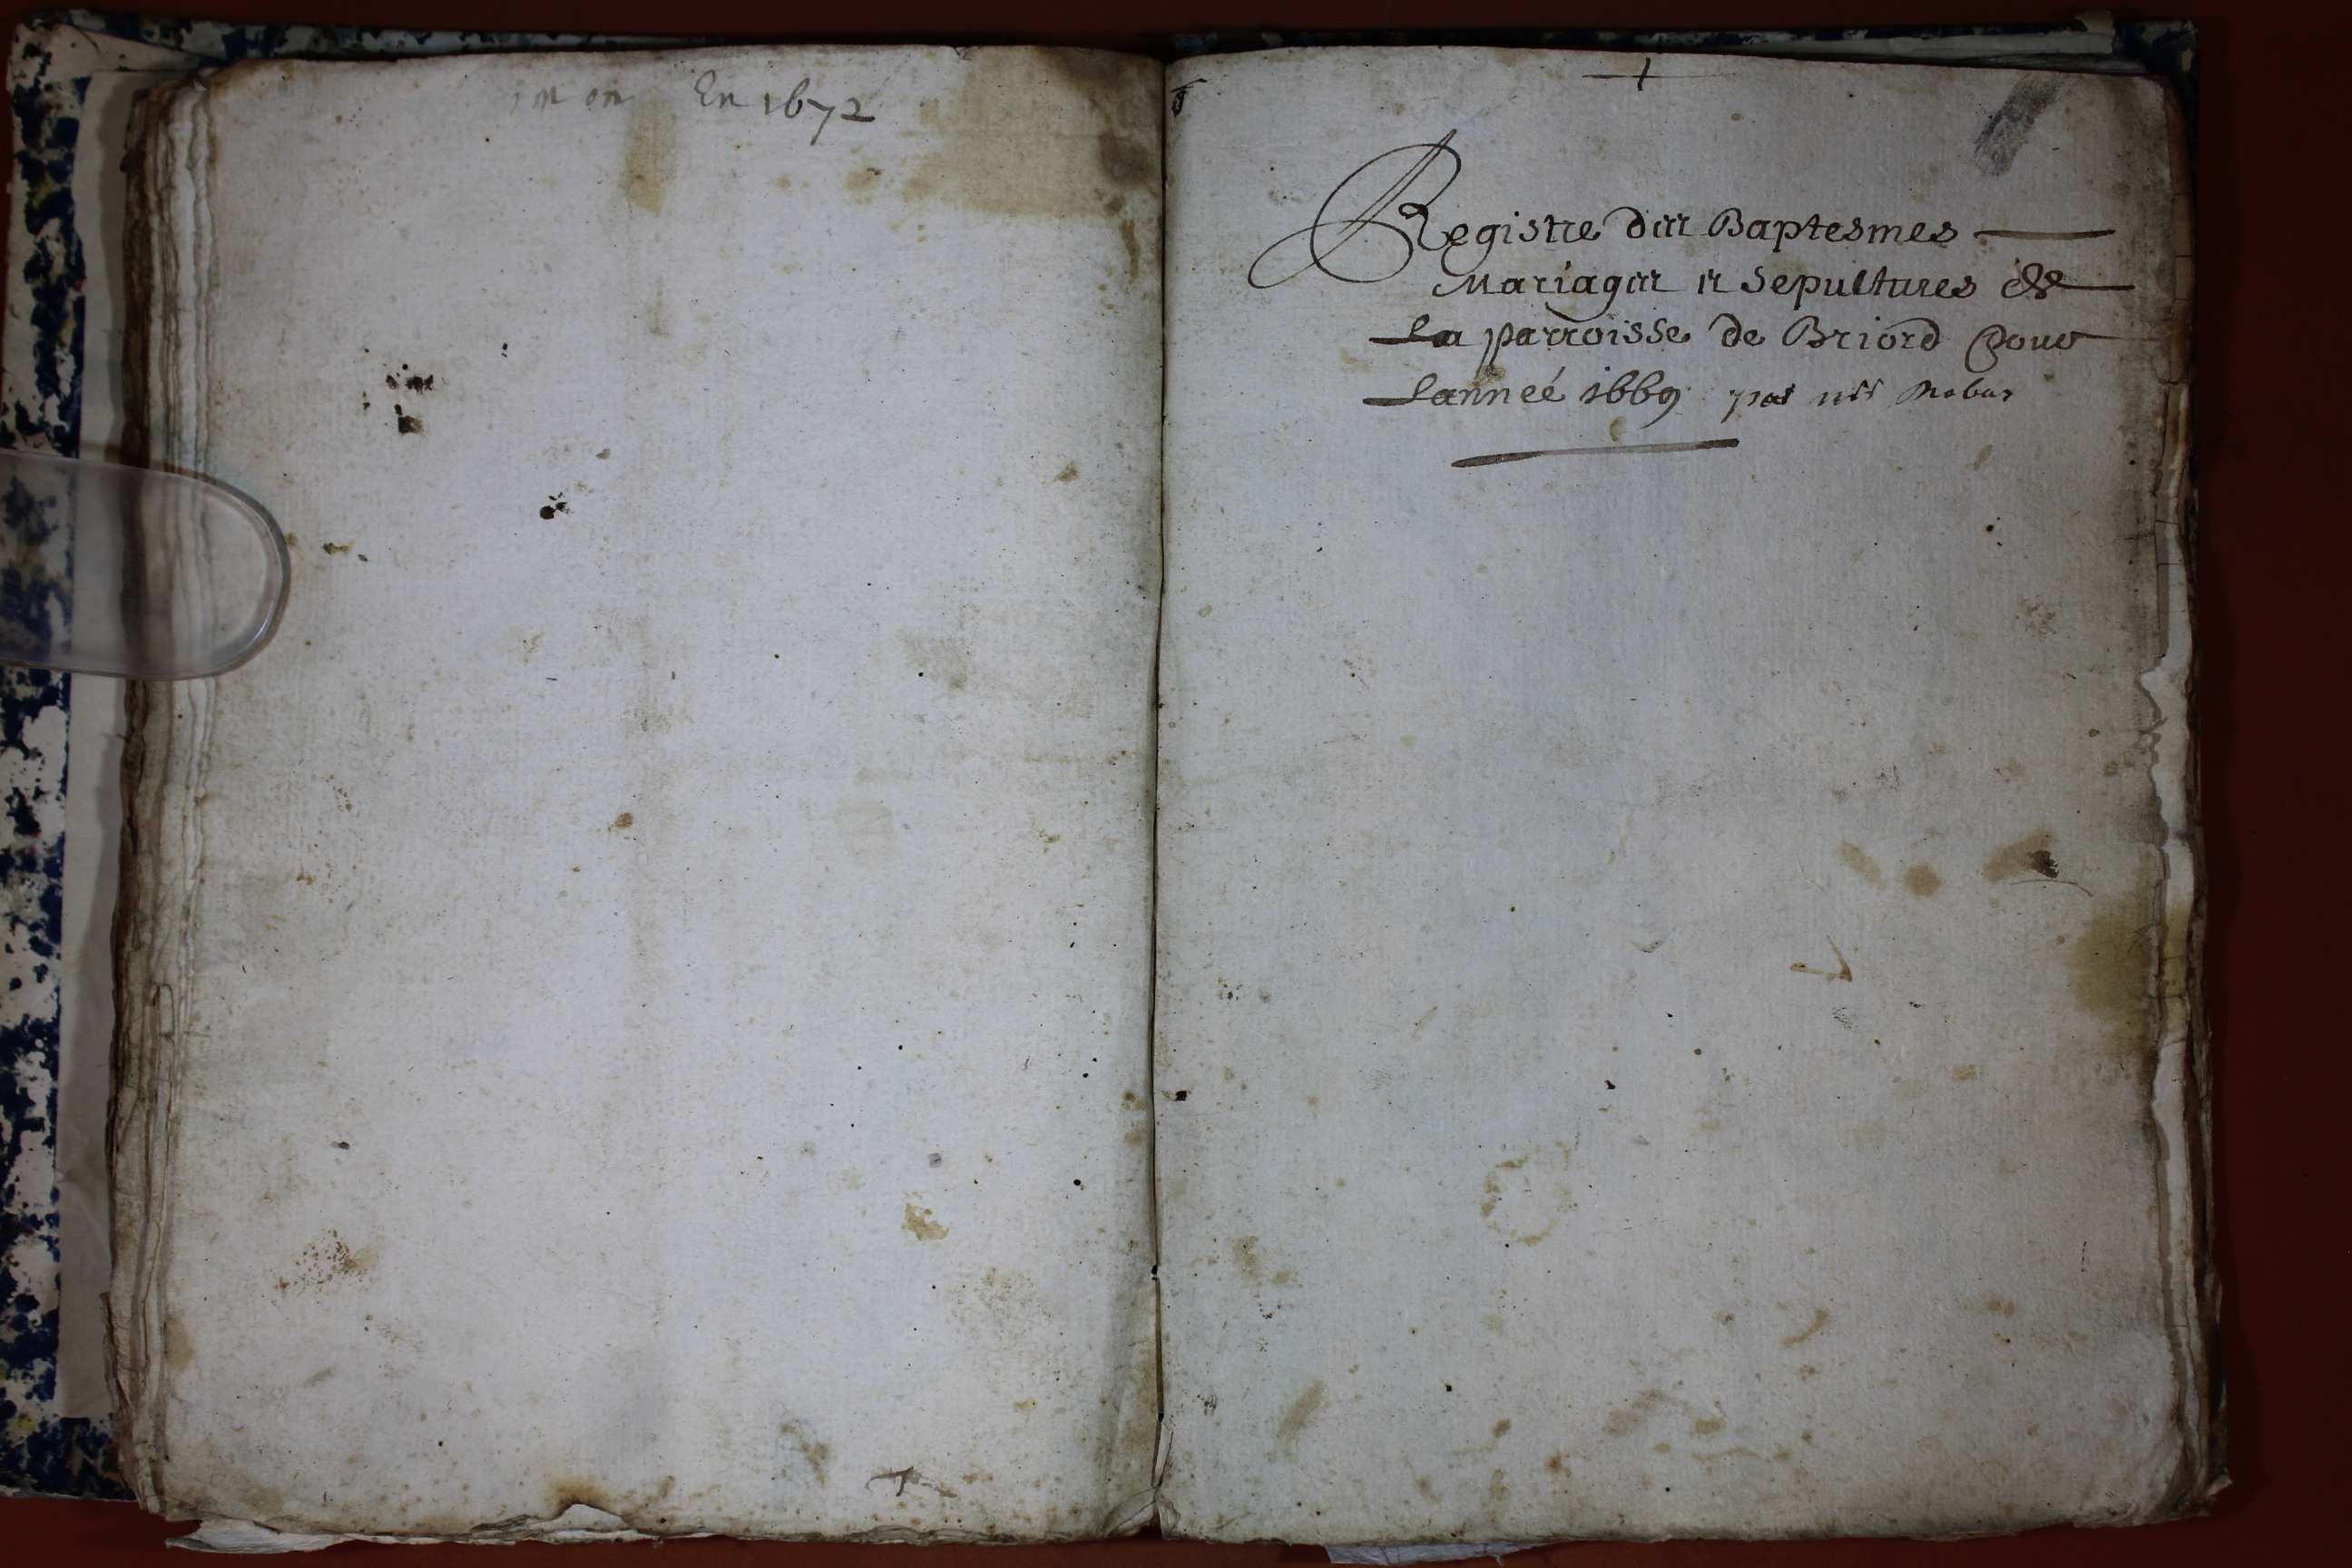 En 1672
Registre des Baptesmes
Mariages et Sepultures de
La parroisse de Briord pour
Lanneé 1669 par